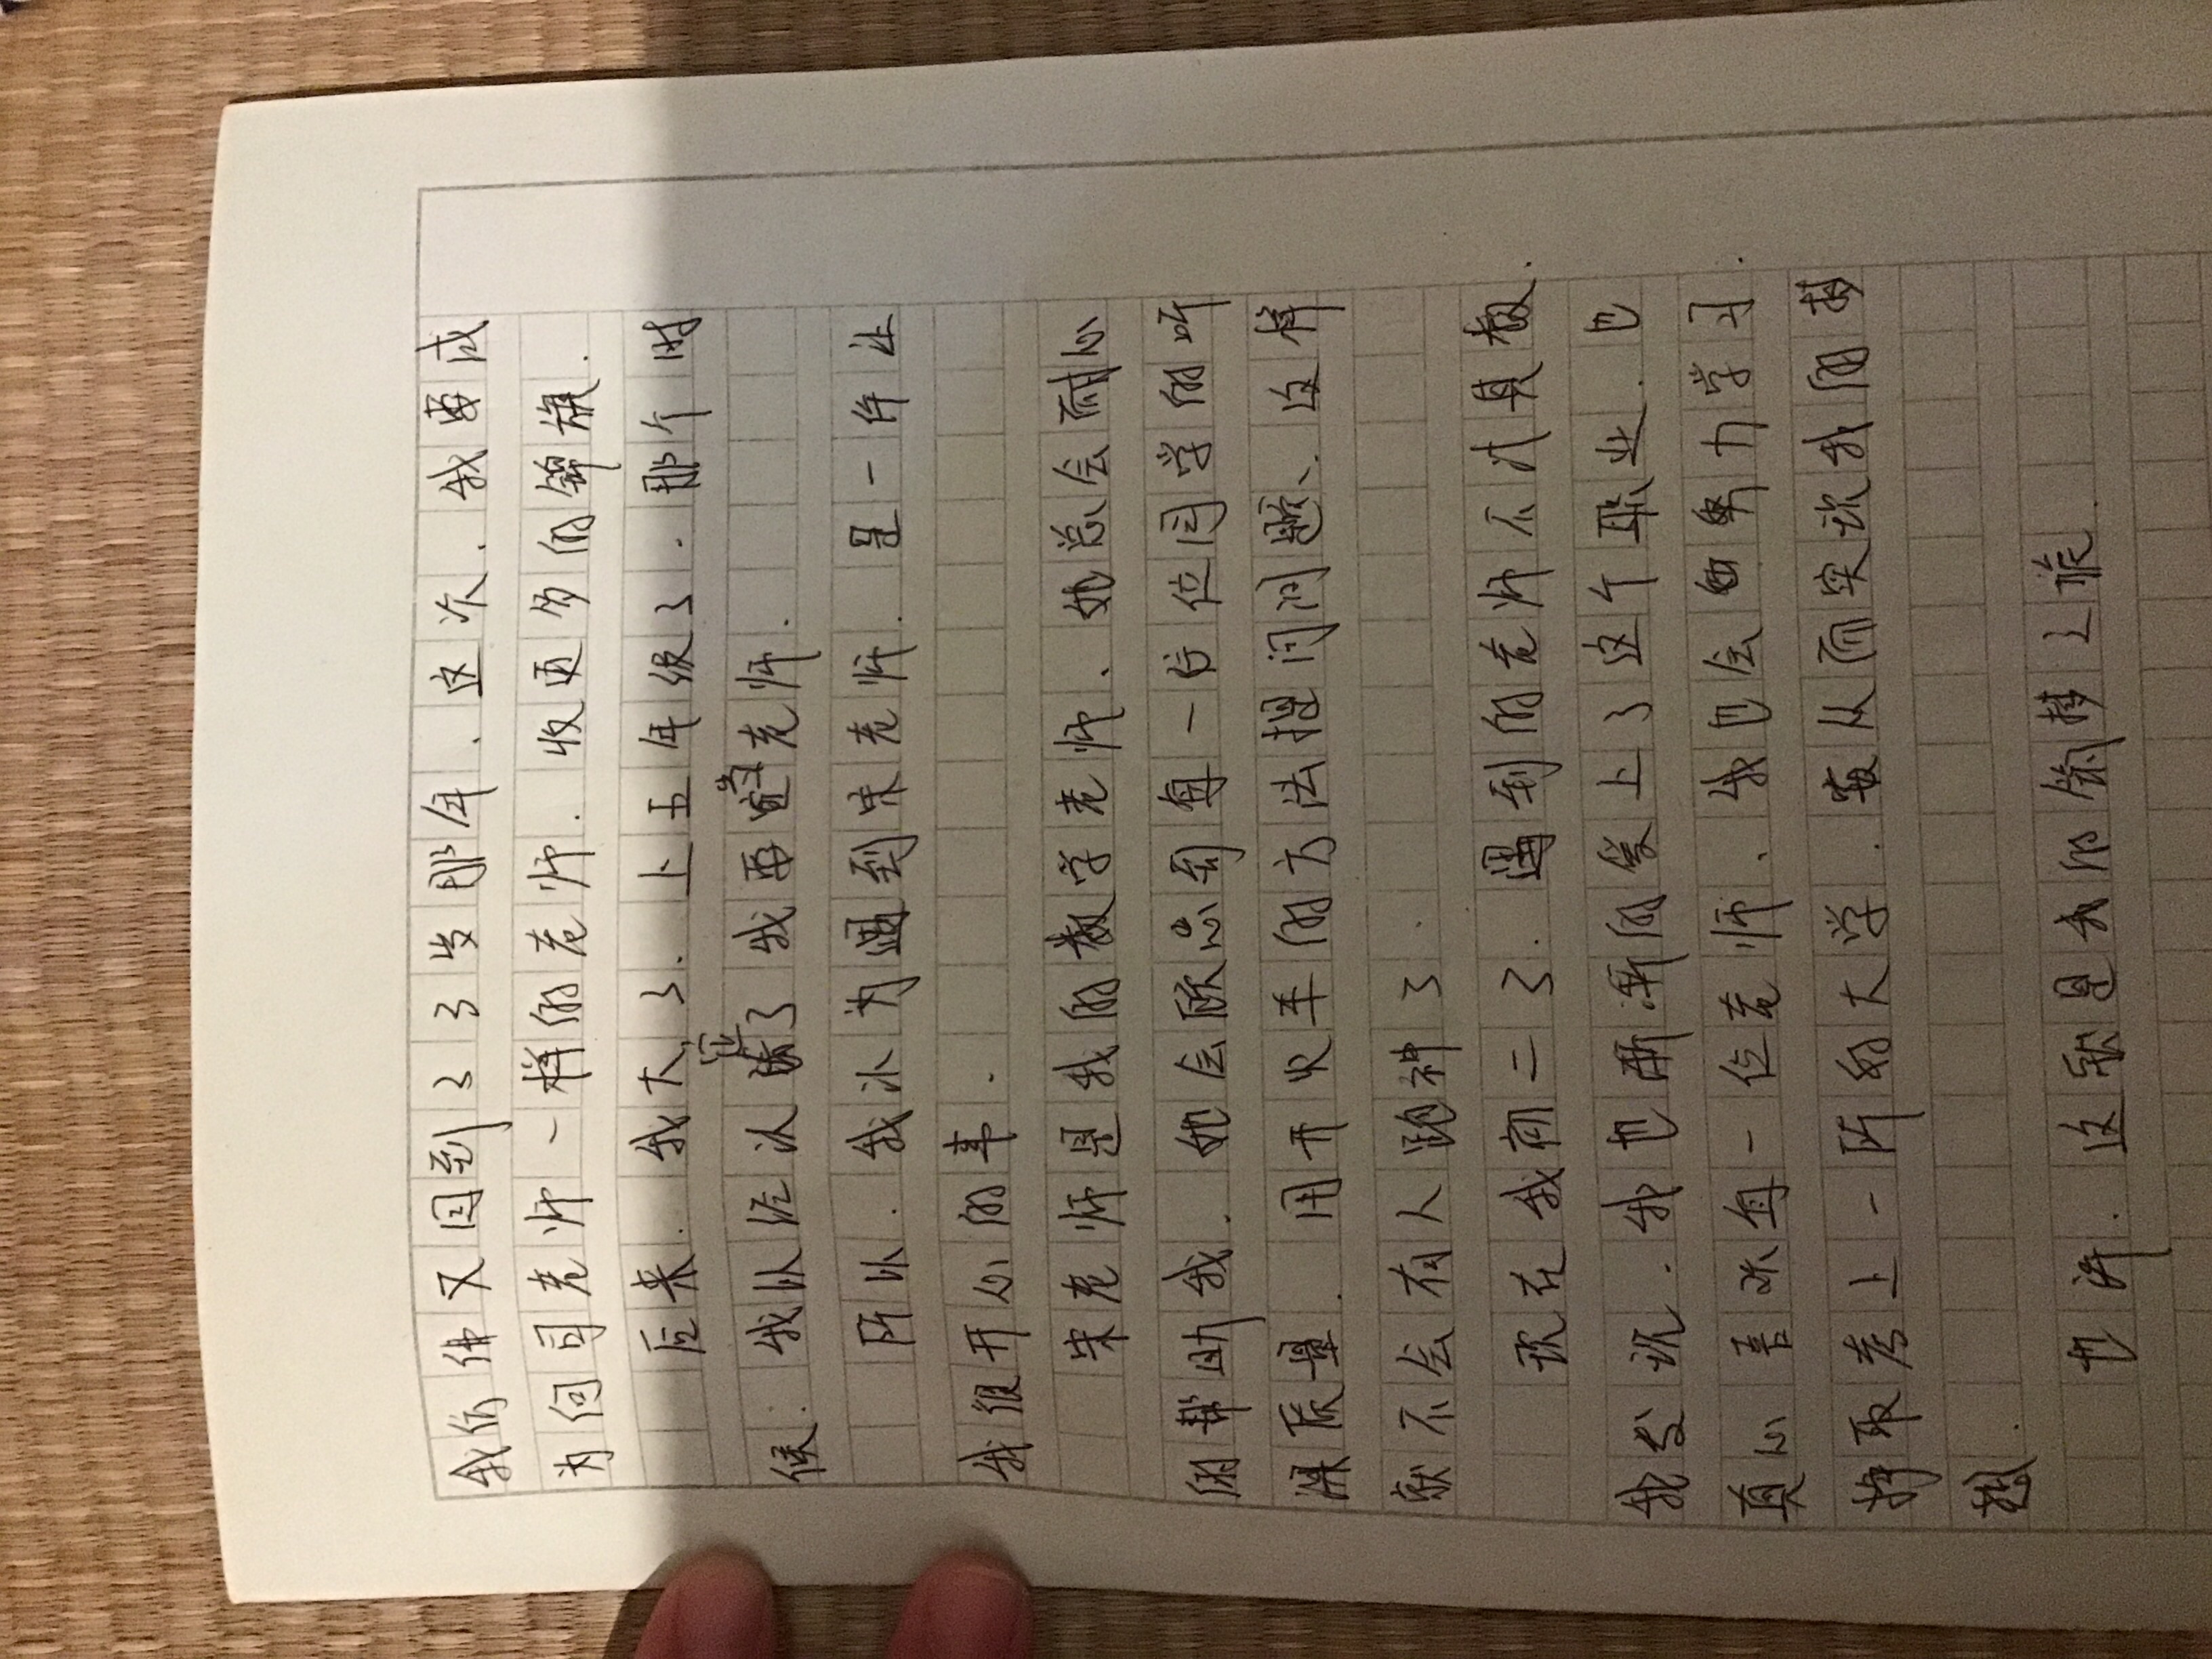 我仿佛又回到23岁那年,这次,我要成
为何司老师一样的老师.收更多的锦旗.
后来.我大了.上五年级了.那个时
候.我以后认识了我再 老师.
所以.我认为遇到宋老师.是一件让
我很开心的事.
宋老师是我的数学老师、她总会耐心
的帮助我.她会顾忌到每一位同学的听
课质量.用开火车的方法提问问题、这样
就不会有人跑神了.
现在我初二了.遇到的老师不计其数.
我发现.我也渐渐的爱上了这个职业.也
真心喜欢每一位老师、我也会 努力学习.
挣取考上一所好大学. 从而实现我的梦
想.
也许.这就是我的 梦之旅.